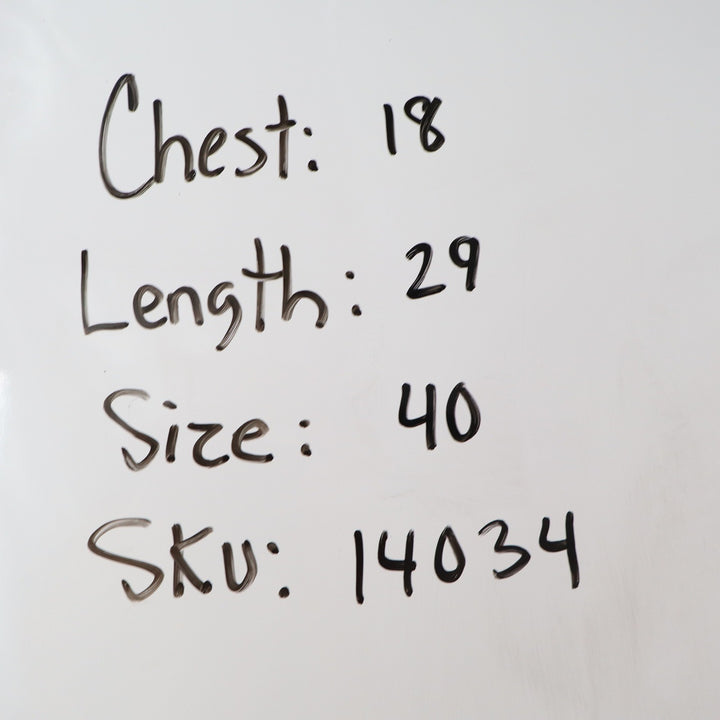 Chest: 18
Length: 29
Size: 40
SKU: 14034